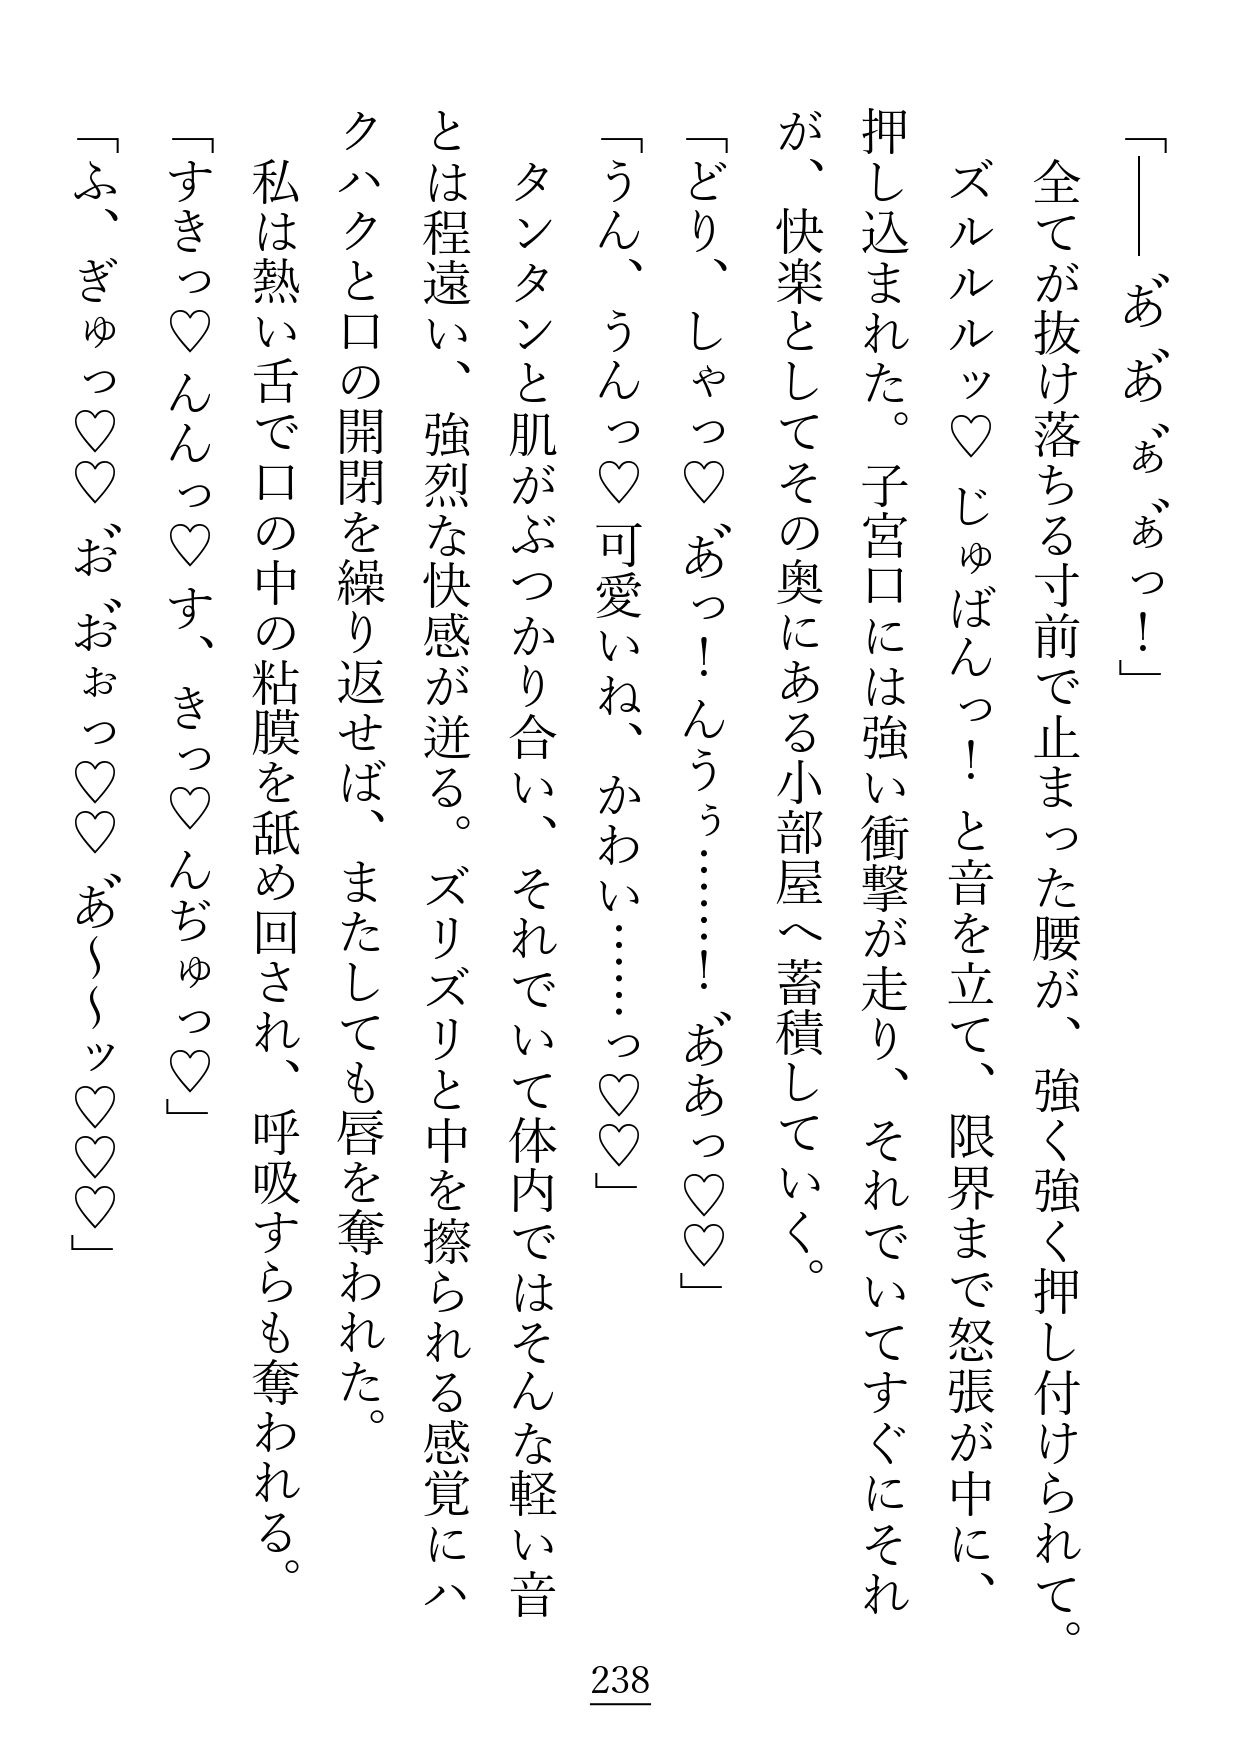 「――あ゛あ゛ぁ゛ぁ゛っ！」
　全てが抜け落ちる寸前で止まった腰が、強く強く押し付けられて。
　ズルルルッ♡ じゅばんっ！ と音を立て、限界まで怒張が中に、
押し込まれた。子宮口には強い衝撃が走り、それでいてすぐにそれ
が、快楽としてその奥にある小部屋へ蓄積していく。
「どり、しゃっ♡ あ゛っ！んうぅ……！あ゛あっ♡♡」
「うん、うんっ♡可愛いね、かわい……っ♡♡」
　タンタンと肌がぶつかり合い、それでいて体内ではそんな軽い音
とは程遠い、強烈な快感が迸る。ズリズリと中を擦られる感覚にハ
クハクと口の開閉を繰り返せば、またしても唇を奪われた。
　私は熱い舌で口の中の粘膜を舐め回され、呼吸すらも奪われる。
「すきっ♡んんっ♡す、きっ♡んぢゅっ♡」
「ふ、ぎゅっ♡♡お゛お゛ぉっ♡♡あ゛～～ッ♡♡♡」
238